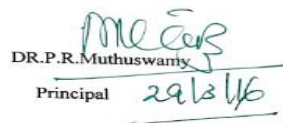 DR.P.R.Muthuswamy
Principal 29/3/16